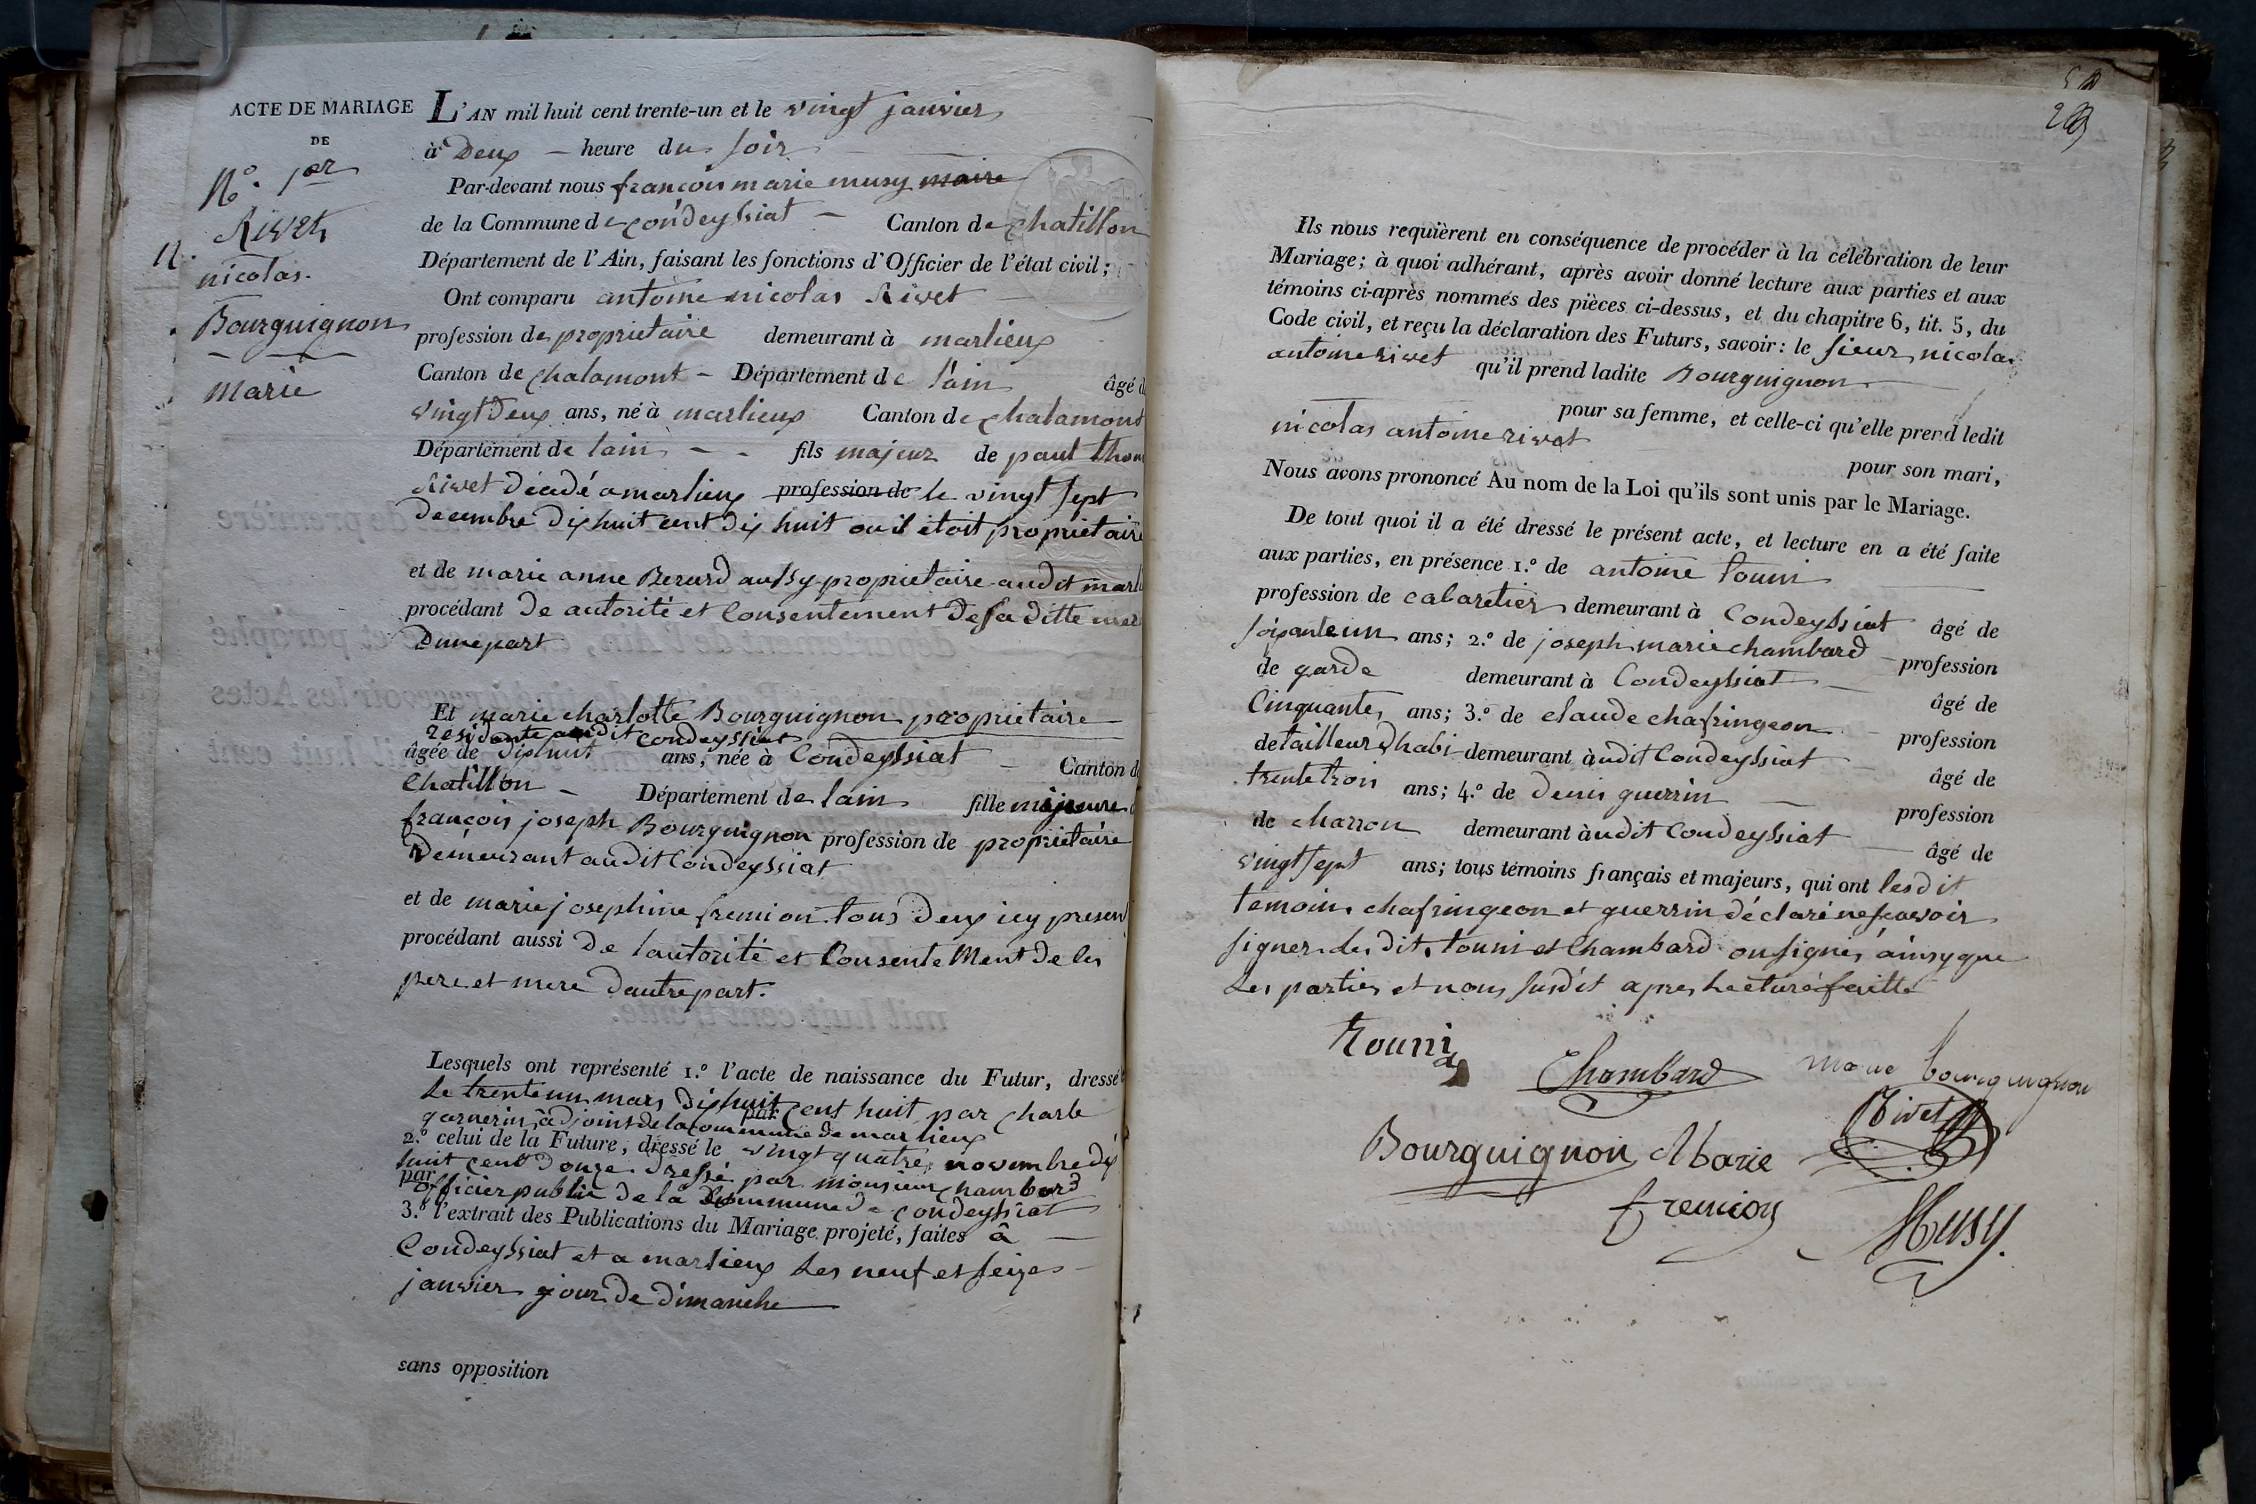 ACTE DE MARIAGE
DE
N.° 1er
Rivet
nicolas.
Bourguignon
marie
L'AN mil huit cent trente-un et le vingt janvier
à Deux — heure du soir
Par-devant nous francois marie musy maire
de la Commune de condeyssiat — Canton de chatillon
Département de l'Ain, faisant les fonctions d'Officier de l'état civil;
Ont comparu antoine nicolas Rivet
profession de proprietaire demeurant à marlieux
Canton de chalamont — Département de l'ain âgé d
vingt Deux ans, né à marlieux Canton de chalamont
Département de lain — - fils majeur de paul thom
Rivet décédé a marlieux profession de le vingt sept
decembre dix huit cent dix huit ou il étoit proprietaire
et de marie anne Berard aussy proprietaire audit marl
procédant de autorité et Consentement De sa ditte mer
Dune part
Et marie charlotte Bourguignon proprietaire
residante audit condeyssiat
âgée de dix huit ans, née à Condeyssiat — Canton d
Chatillon — Département de lain fille majeure d
françois joseph Bourguignon profession de proprietaire
Demeurant audit Condeyssiat
et de marie josephine fremion tous deux icy presen
procédant aussi De lautorité et Consentement De les
pere et mere Dautre part.
Lesquels ont représenté 1.° l'acte de naissance du Futur, dressé
Le trente un mars dix huit cent huit par Charle
par
garnerin adjoint de la commune de marlieux
2.° celui de la Future, dressé le vingt quatre novembre dix
huit cent Douze dressé par monsieur chambard
par officier public de la Commune de condeyssiat
3.° l'extrait des Publications du Mariage projeté, faites à —
Condeyssiat et a marlieux Les neuf et seize
janvier jour De Dimanche
sans opposition
Ils nous requièrent en conséquence de procéder à la célébration de leur
Mariage; à quoi adhérant, après avoir donné lecture aux parties et aux
témoins ci-après nommés des pièces ci-dessus, et du chapitre 6, tit. 5, du
Code civil, et reçu la déclaration des Futurs, savoir: le sieur nicolas
antoine rivet qu'il prend ladite Bourguignon
pour sa femme, et celle-ci qu'elle prend ledit
nicolas antoine rivet
pour son mari,
Nous avons prononcé Au nom de la Loi qu'ils sont unis par le Mariage.
De tout quoi il a été dressé le présent acte, et lecture en a été faite
aux parties, en présence 1.° de antoine touni
profession de cabaretier demeurant à Condeyssiat âgé de
soixante un ans; 2.° de joseph marie chambard profession
de garde demeurant à Condeyssiat — âgé de
Cinquante, ans; 3.° de claude chafringeon profession
de tailleur Dhabi demeurant à udit Condeyssiat âgé de
trente trois ans; 4.° de Denis guerrin — profession
de charron demeurant à udit Condeyssiat — âgé de
vingt sept ans; tous témoins français et majeurs, qui ont lesdit
temoins chafringeon et guerrin déclaré ne savoir
signer. Les dit. touni et Chambard on signés ainsy que
Les parties et nous susdit apres Lecture faitte
touni
Chambard
marie bourguignon
Rivet
Bourguignon Marie
fremion
Musy